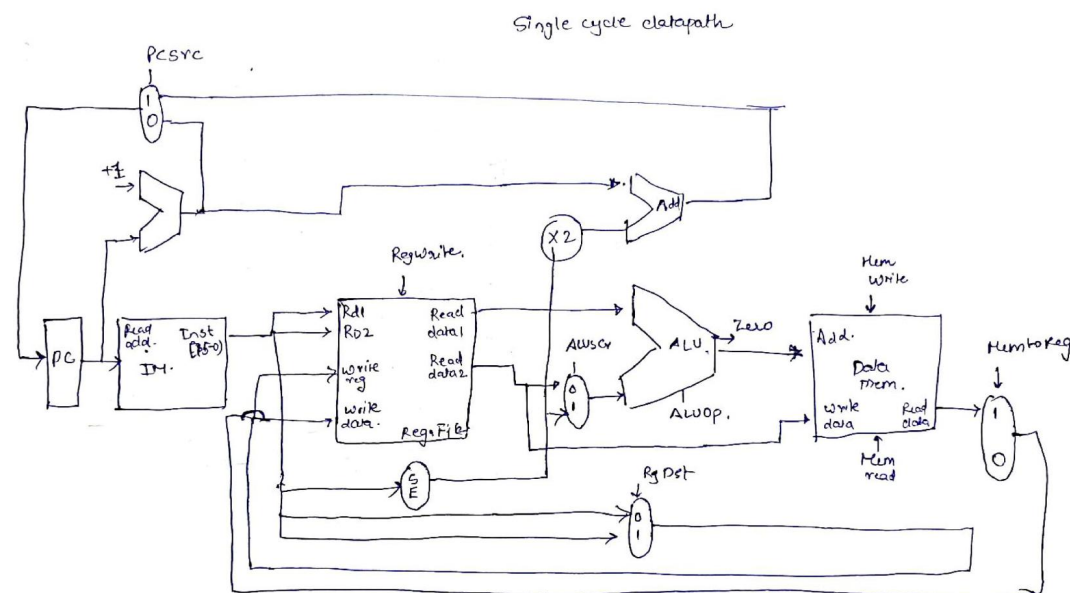 Single cycle datapath
PCsrc
1
0
+1
Add
X2
RegWrite.
Mem
Write
Rd1
RD2
Write
reg
Write
data.
Read
data1
Read
data2
Regs File
PC
Read
add.
IM.
Inst
ALUScr
0
1
ALU.
Zero
ALUOp.
Add.
Data
Mem.
Write
data
Read
data
Mem
read
MemtoReg
1
0
S
E
RgDst
0
1